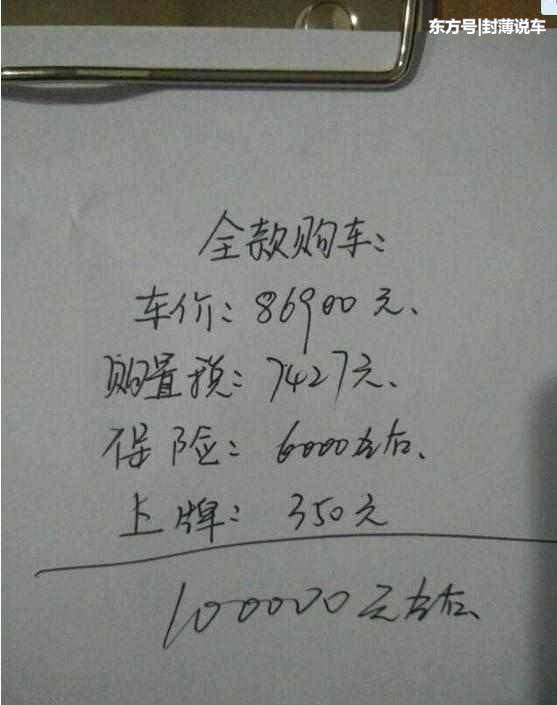 东方号|封薄说车
全款购车：
车价：86900元、
购置税：7427元、
保险：6000左右、
上牌：350元
100000元左右、